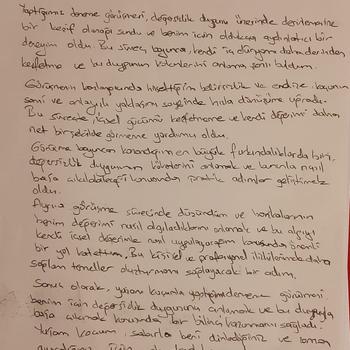 Yaptığımız deneme görüşmesi, değersizlik duygusu üzerinde derinlemesine
bir keşif olanağı sundu ve benim için oldukça aydınlatıcı bir
deneyim oldu. Bu süreç boyunca, kendi iç dünyamı daha derinden
keşfetme ve bu duygunun kökenlerini anlama şansı buldum.
Görüşmenin başlangıcında hissettiğim belirsizlik ve endişe, koçumun
sami ve anlayışlı yaklaşımı sayesinde hızla dönüşüme uğradı.
Bu süreçte, kişisel gücümü keşfetmeme ve kendi değerimi daha
net bir şekilde görmeme yardımcı oldu.
Görüşme boyunca kazandığım en büyük farkındalıklardan biri,
değersizlik duygusunun kökenlerini anlamak ve bununla nasıl
başa çıkılabileceği konusunda pratik adımlar geliştirmek
oldu.
Ayrıca görüşme sürecinde düşündüm ve başkalarının
benim değerimi nasıl algıladıklarını anlamak ve bu algıyı
kendi içsel değerimle nasıl uygulayacağım konusunda önemli
bir yol katettim. Bu kişisel ve profesyonel ilişkilerimde daha
sağlam temeller oluşturmamı sağlayacak bir adım.
Sonuç olarak, yaşam koçumla yaptığım deneme görüşmesi
benim için değersizlik duygusunu anlamak ve bu duyguyla
başa çıkmak konusunda bir bilinç kazanmamı sağladı.
Yaşam koçum, sabırla beni dinlediğiniz ve bana
için